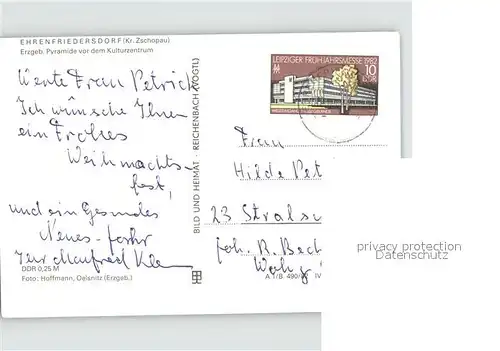 EHRENFRIEDERSDORF (Kr. Zschopau)
Erzgeb. Pyramide vor dem Kulturzentrum
LEIPZIGER FRÜHJAHRSMESSE 1982
10
DDR
Werte Frau Petrick
Ich wünsche Ihnen
ein Frohes
Weihnachts-
fest,
und ein Gesundes
Neues-Jahr
Ihr Manfred
DDR 0,25 M
Foto: Hoffmann, Oelsnitz (Erzgeb.)
BILD UND HEIMAT · REICHENBACH (VOGTL)
Frau
Hilde Pet
23 Stralsu
Joh. R. Bech
A 1/B 490/ IV
privacy protection
Datenschutz